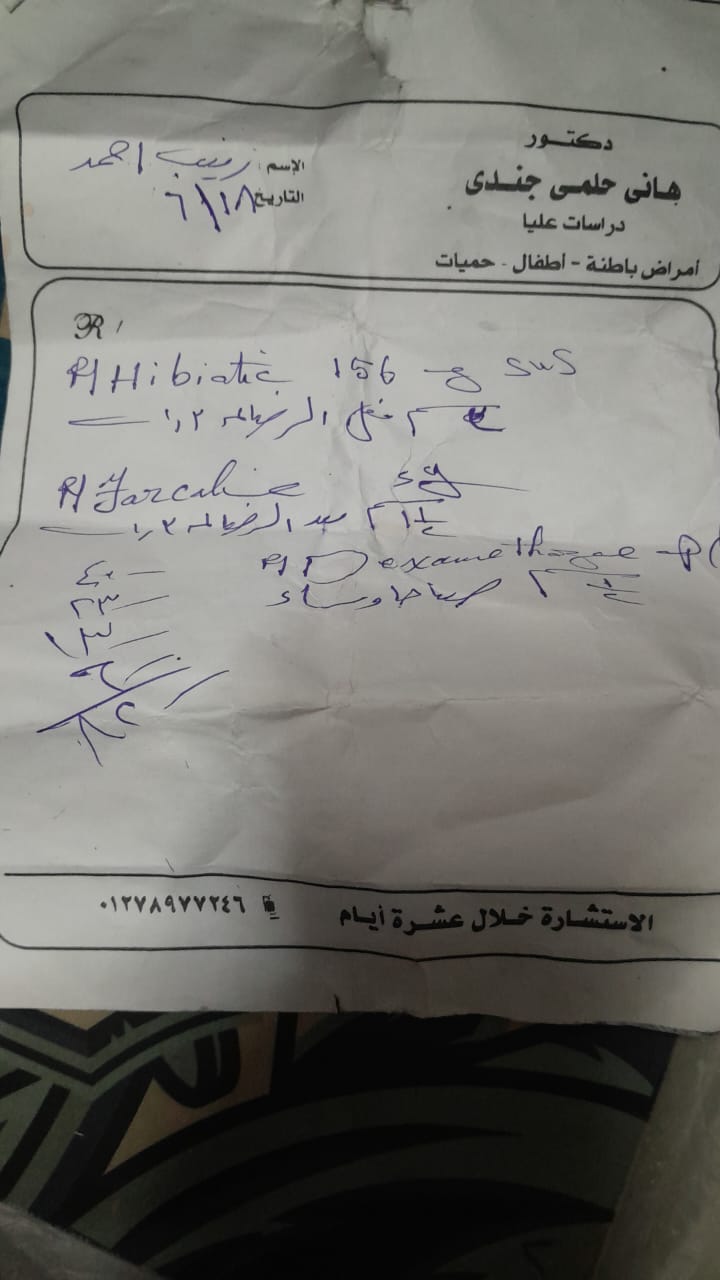 دكتـور
هانى حلمى جندى
دراسات عليا
أمراض باطنة - أطفال - حميات
الإسم : زينب احمد
التاريخ ٦/١٨
R/
R/ Hibiotic 156 mg sus
٣ قبل الرضاعة ١٢
R/ Farcoline sy
١/٢ ٣ بعد الرضاعة ١٢
R/ Dexamethazone
١/٢ ٣ صباحا ومساء
٤٠
٢٣
١٣
الاستشارة خلال عشرة أيام
٠١٢٧٨٩٧٧٢٤٦